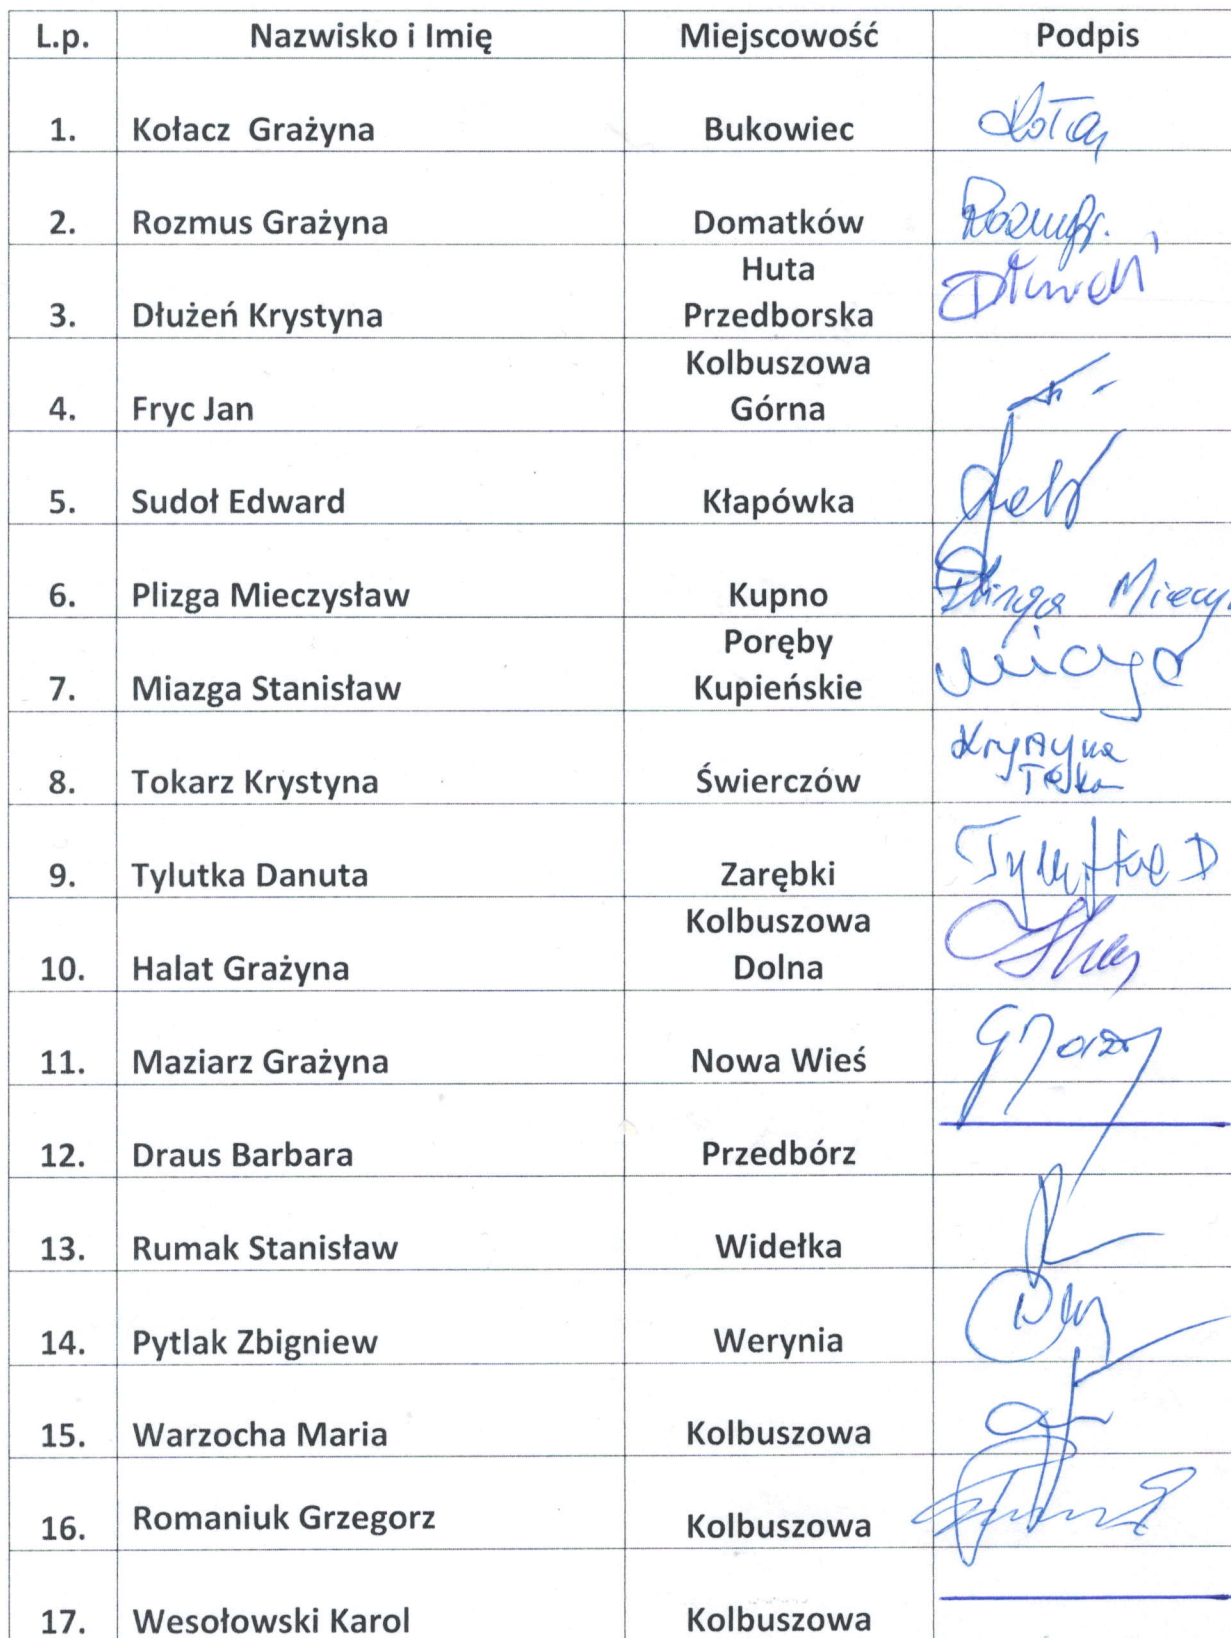 L.p. Nazwisko i Imię Miejscowość Podpis
1. Kołacz Grażyna Bukowiec
2. Rozmus Grażyna Domatków
Huta
3. Dłużeń Krystyna Przedborska
Kolbuszowa
4. Fryc Jan Górna
5. Sudoł Edward Kłapówka
6. Plizga Mieczysław Kupno
Poręby
7. Miazga Stanisław Kupieńskie
Krystyna
8. Tokarz Krystyna Świerczów
9. Tylutka Danuta Zarębki Tylutka D
Kolbuszowa
10. Halat Grażyna Dolna
11. Maziarz Grażyna Nowa Wieś
12. Draus Barbara Przedbórz
13. Rumak Stanisław Widełka
14. Pytlak Zbigniew Werynia
15. Warzocha Maria Kolbuszowa
16. Romaniuk Grzegorz Kolbuszowa
17. Wesołowski Karol Kolbuszowa